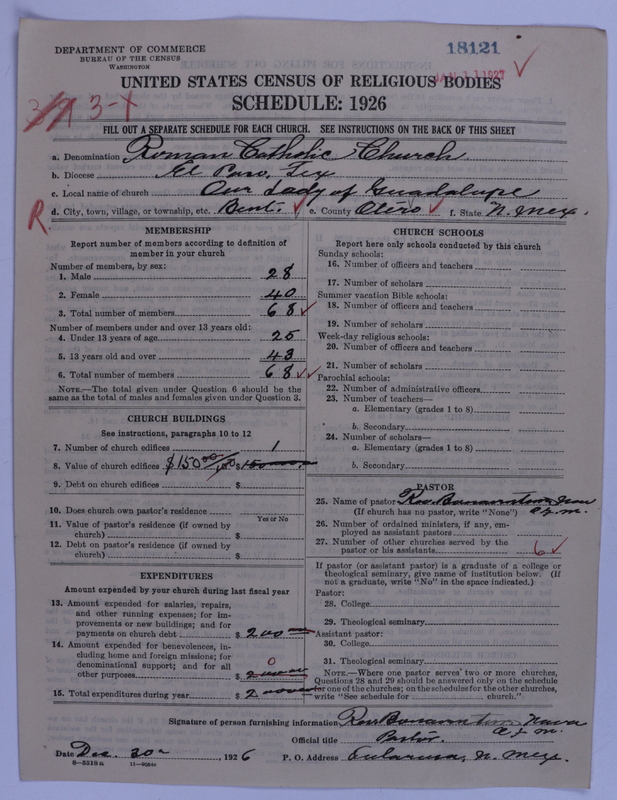 DEPARTMENT OF COMMERCE
BUREAU OF THE CENSUS
WASHINGTON
18121
JAN 11 1927
UNITED STATES CENSUS OF RELIGIOUS BODIES
SCHEDULE: 1926
3-X
FILL OUT A SEPARATE SCHEDULE FOR EACH CHURCH. SEE INSTRUCTIONS ON THE BACK OF THIS SHEET
a. Denomination Roman Catholic Church
b. Diocese El Paso, Tex
c. Local name of church Our Lady of Guadalupe
R.
d. City, town, village, or township, etc. Bent. e. County Otero f. State N. Mex.
MEMBERSHIP
Report number of members according to definition of
member in your church
Number of members, by sex:
1. Male 28
2. Female 40
3. Total number of members 68
Number of members under and over 13 years old:
4. Under 13 years of age 25
5. 13 years old and over 43
6. Total number of members 68
NOTE.—The total given under Question 6 should be the
same as the total of males and females given under Question 3.
CHURCH BUILDINGS
See instructions, paragraphs 10 to 12
7. Number of church edifices 1
8. Value of church edifices $150.00 $
9. Debt on church edifices $
10. Does church own pastor's residence
Yes or No
11. Value of pastor's residence (if owned by
church) $
12. Debt on pastor's residence (if owned by
church) $
EXPENDITURES
Amount expended by your church during last fiscal year
13. Amount expended for salaries, repairs,
and other running expenses; for im-
provements or new buildings; and for
payments on church debt $
14. Amount expended for benevolences, in-
cluding home and foreign missions; for
denominational support; and for all
other purposes $ 0
15. Total expenditures during year $
CHURCH SCHOOLS
Report here only schools conducted by this church
Sunday schools:
16. Number of officers and teachers
17. Number of scholars
Summer vacation Bible schools:
18. Number of officers and teachers
19. Number of scholars
Week-day religious schools:
20. Number of officers and teachers
21. Number of scholars
Parochial schools:
22. Number of administrative officers
23. Number of teachers—
a. Elementary (grades 1 to 8)
b. Secondary
24. Number of scholars—
a. Elementary (grades 1 to 8)
b. Secondary
PASTOR
25. Name of pastor Rev.
(If church has no pastor, write "None")
26. Number of ordained ministers, if any, em-
ployed as assistant pastors
27. Number of other churches served by the
pastor or his assistants 6
If pastor (or assistant pastor) is a graduate of a college or
theological seminary, give name of institution below. (If
not a graduate, write "No" in the space indicated.)
Pastor:
28. College
29. Theological seminary
Assistant pastor:
30. College
31. Theological seminary
NOTE.—Where one pastor serves two or more churches,
Questions 28 and 29 should be answered only on the schedule
for one of the churches; on the schedules for the other churches,
write "See schedule for church."
Signature of person furnishing information Rev.
Official title Pastor.
Date Dec. 30 1926 P. O. Address Tularosa, N. Mex.
8-5518a 11-90846